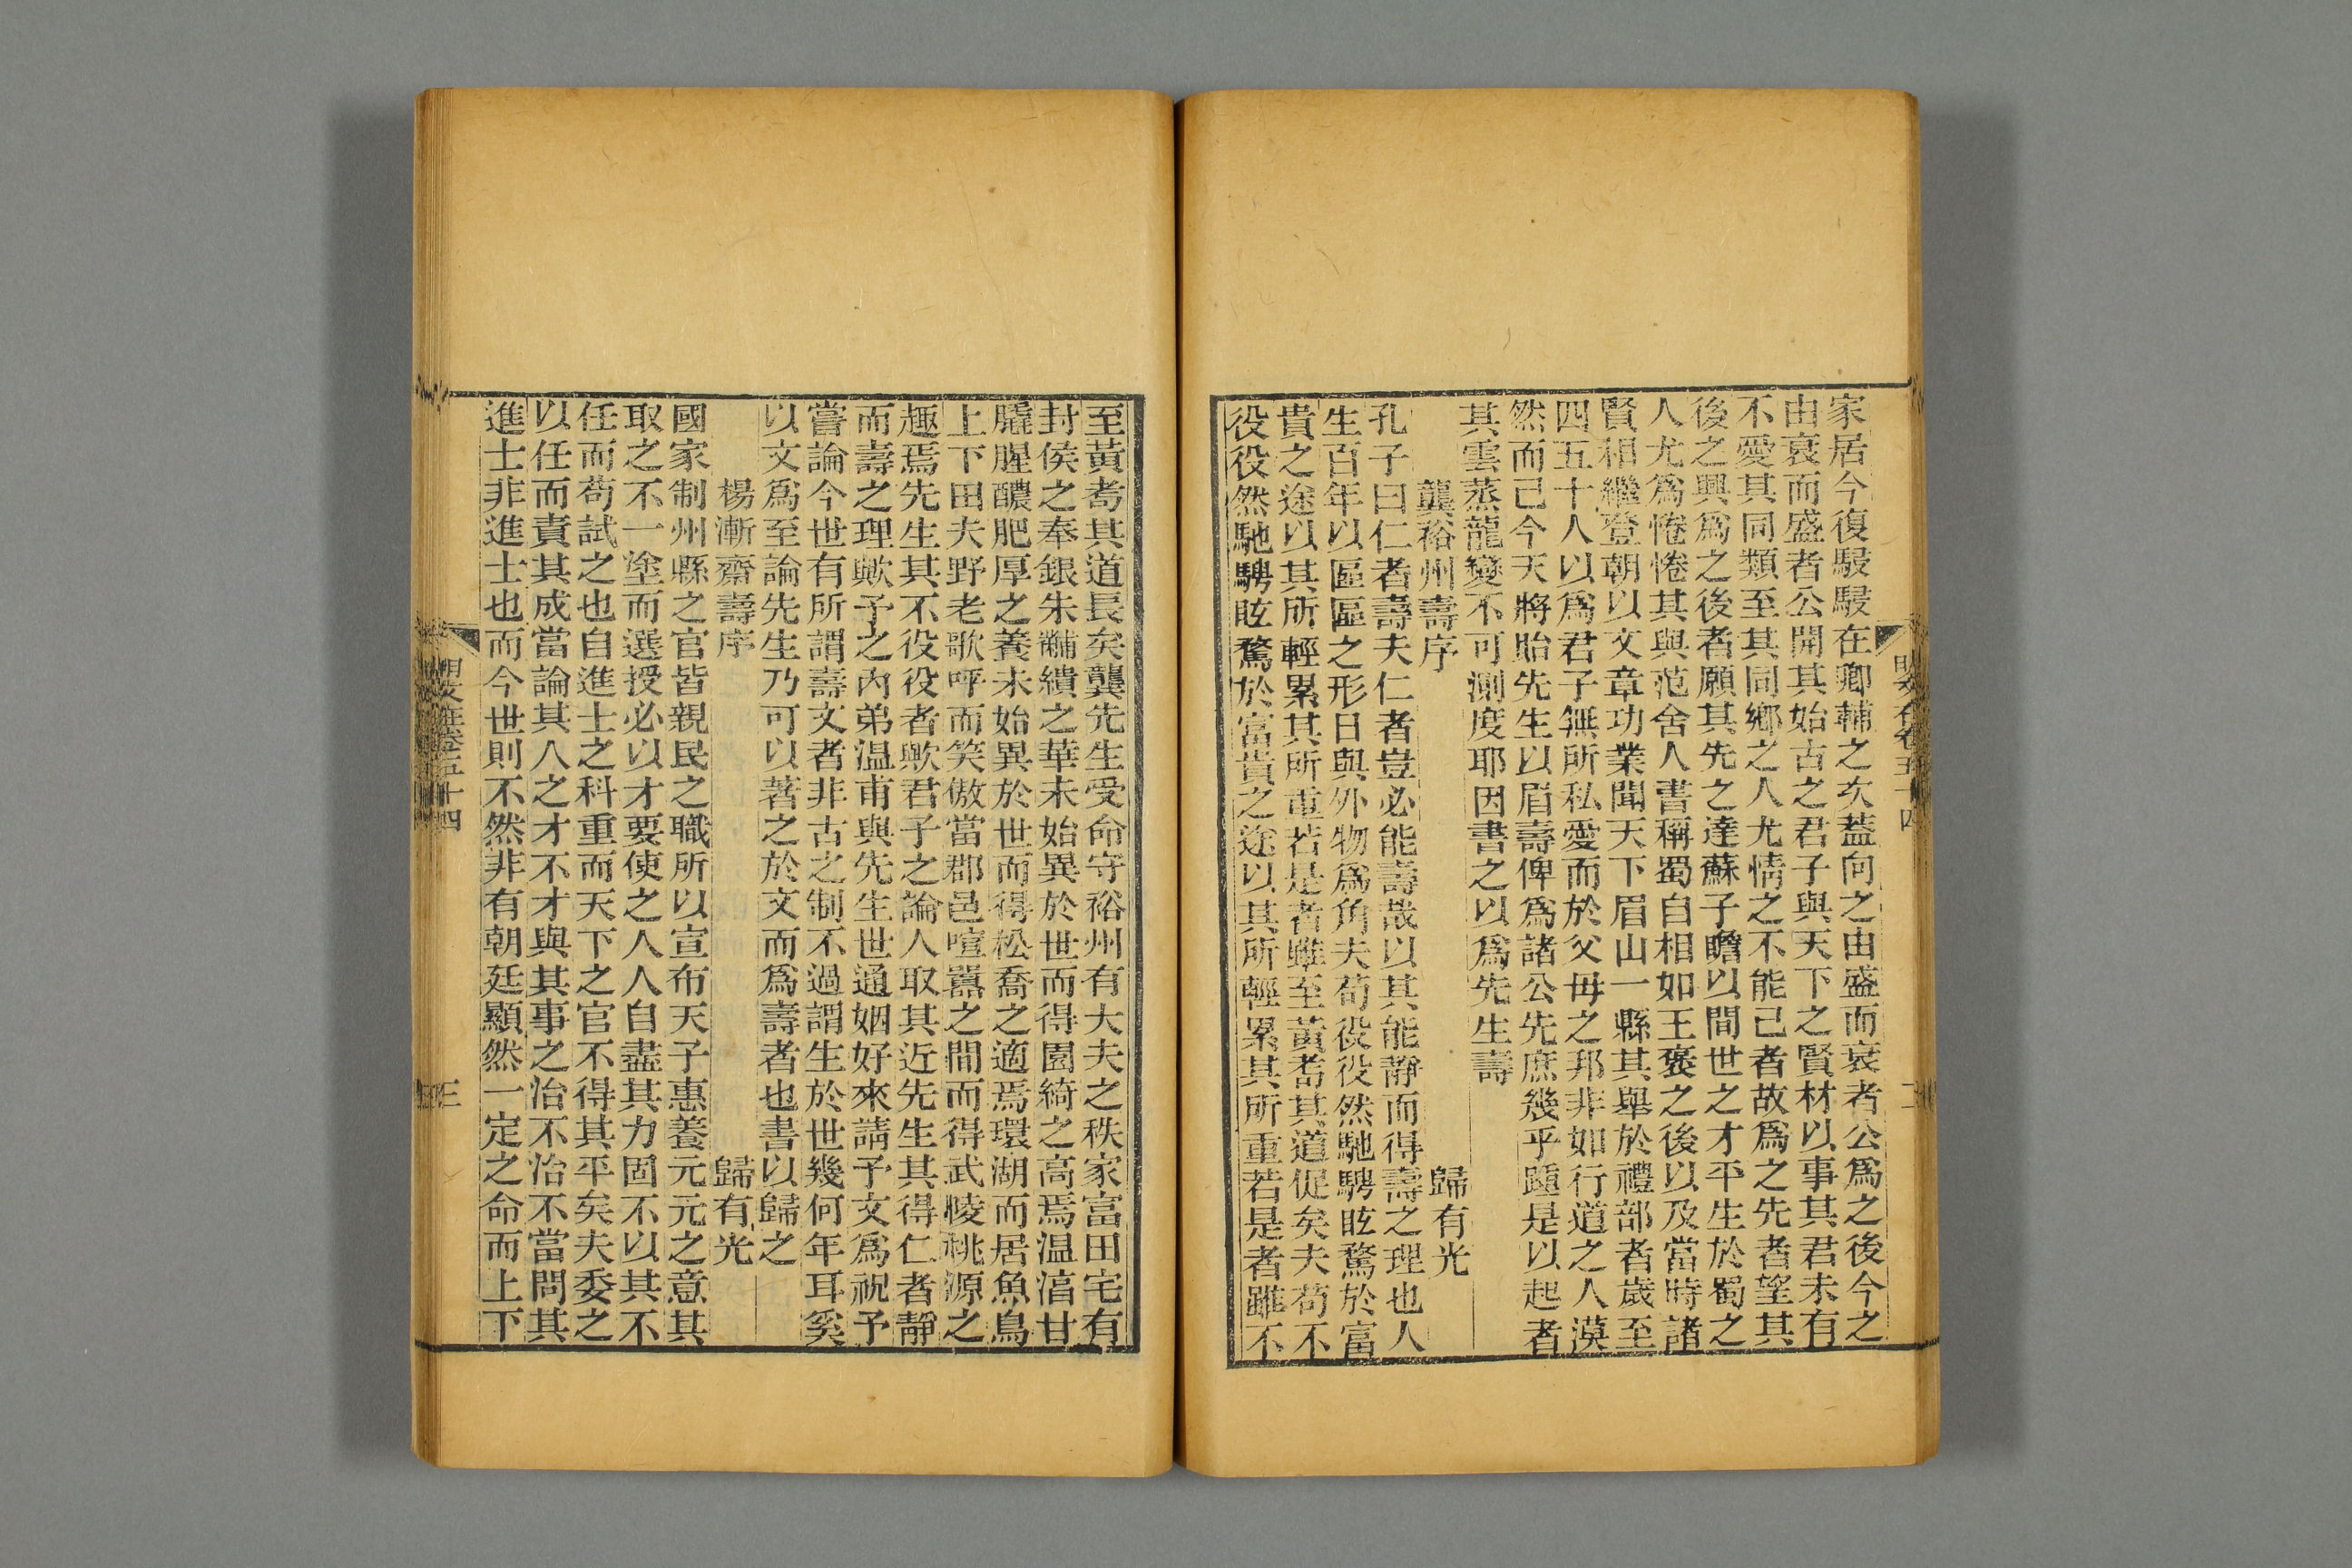 家居今復駸駸在卿輔之次葢向之由盛而衰者公爲之後今之
由衰而盛者公開其始古之君子與天下之賢材以事其君未有
不愛其同類至其同鄉之人尤情之不能已者故爲之先者望其
後之興爲之後者願其先之達蘇子瞻以間世之才平生於蜀之
人尤爲惓惓其與范舍人書稱蜀自相如王襃之後以及當時諸
賢相繼登朝以文章功業聞天下眉山一縣其舉於禮部者歲至
四五十人以爲君子無所私愛而於父母之邦非如行道之人漠
然而已今天將貽先生以眉壽俾爲諸公先庶幾乎踵是以起者
其雲蒸龍變不可測度耶因書之以爲先生壽
龔裕州壽序 歸有光
孔子曰仁者壽夫仁者豈必能壽哉以其能靜而得壽之理也人
生百年以區區之形日與外物爲角夫苟役役然馳騁眩騖於富
貴之途以其所輕累其所重若是者雖至黃耇其道促矣夫苟不
役役然馳騁眩騖於富貴之途以其所輕累其所重若是者雖不
至黃耇其道長矣龔先生受命守裕州有大夫之秩家富田宅有
封侯之奉銀朱黼繢之華未始異於世而得園綺之高焉温滫甘
膬腥醲肥厚之養未始異於世而得松喬之適焉環湖而居魚鳥
上下田夫野老歌呼而笑傲當郡邑喧囂之間而得武陵桃源之
趣焉先生其不役役者歟君子之論人取其近先生其得仁者靜
而壽之理歟予之內弟温甫與先生世通姻好來請予文爲祝予
嘗論今世有所謂壽文者非古之制不過謂生於世幾何年耳奚
以文爲至論先生乃可以著之於文而爲壽者也書以歸之
楊漸齋壽序 歸有光
國家制州縣之官皆親民之職所以宣布天子惠養元元之意其
取之不一塗而選授必以才要使之人人自盡其力固不以其不
任而苟試之也自進士之科重而天下之官不得其平矣夫委之
以任而責其成當論其人之才不才與其事之治不治不當問其
進士非進士也而今世則不然非有朝廷顯然一定之命而上下